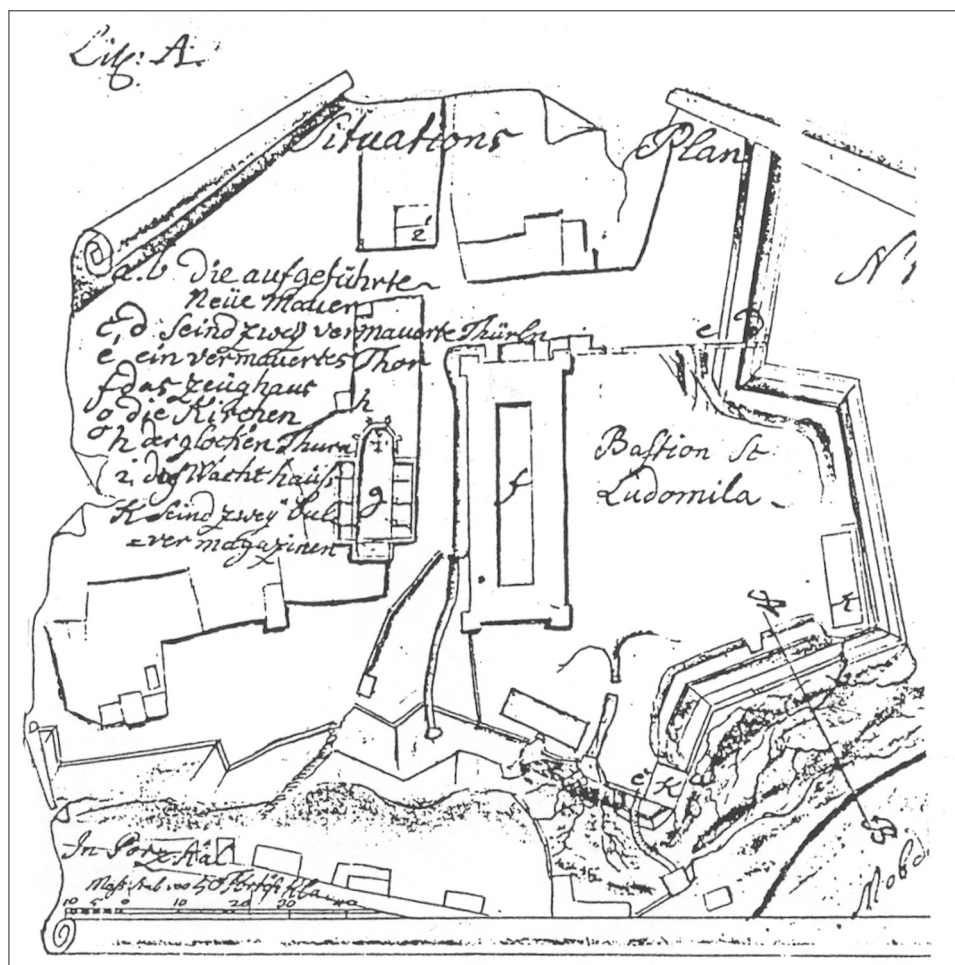 Lit: A.
Situations Plan
i
a.b die aufgeführte
Neüe Mauer
c, d seind zweÿ vermauerte Thürln
e, ein vermauertes Thor
f das zeüghaus
g die Kirchen
h der glocken Thurn
i, das Wacht haüß
K seind zweÿ Pul
=ver magazinen
h
g
f
i
c
Bastion St
Ludomila
k
e
K
a
In
10 5 0 10 20 30 40